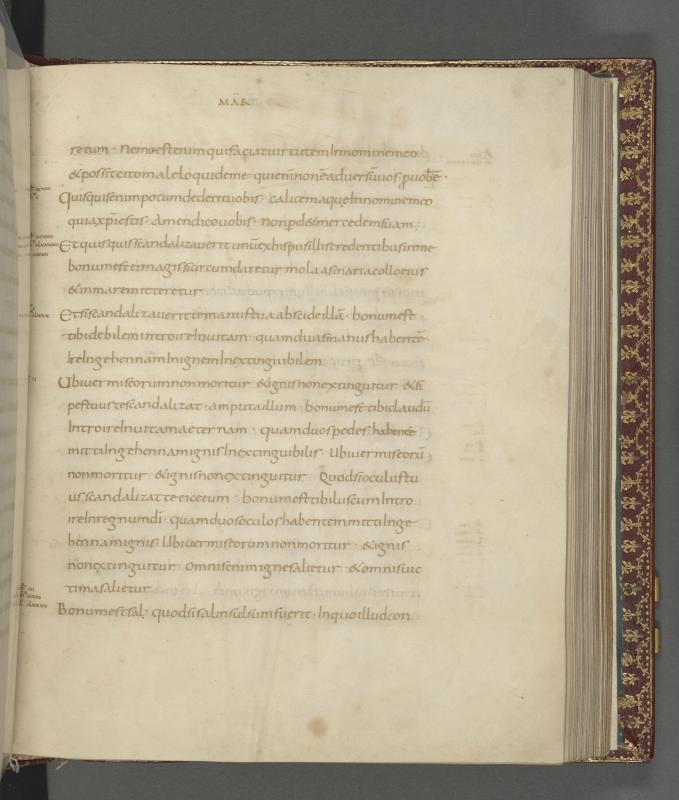 MAR
retum · Nemo est enim qui faciat virtutem In nomine meo
& possit cito male loqui de me · quem non ē adversū vos · p vob ē ·
Quisquis enim potum dederit vobis · calicem aquę In nomine meo
quia xpi estis · Amen dico vobis · non pd& mercedem suam ·
Et quisquis scandalizaverit unū ex his pusillis credentibus in me
bonum est ei magis si circumdaretur mola asinaria collo eius
& in mare mitteretur
Et si scandalizaverit te manus tua abscide illā · bonum est
tibi debilem introire In vitam · quam duas manus habentē
Ire In gehennam In ignem Inextinguibilem
Ubi vermis eorum non moritur · & ignis non extinguitur · & si
pes tuus te scandalizat · amputa illum · bonum est tibi claudū
Introire In vitam aeternam · quam duos pedes habentē
mitti In gehennam ignis Inextinguibilis · Ubi vermis eorū
non moritur · & ignis non extinguitur · Quod si oculus tu
us scandalizat te eice eum · bonum est tibi luscum Intro
ire In regnum dī · quam duos oculos habentem mitti In ge
hennam ignis · Ubi vermis eorum non moritur · & ignis
non extinguitur · Omnis enim igne salietur · & omnis vic
tima salietur
Bonum est sal · quod si sal insulsum fuerit · In quo illud con